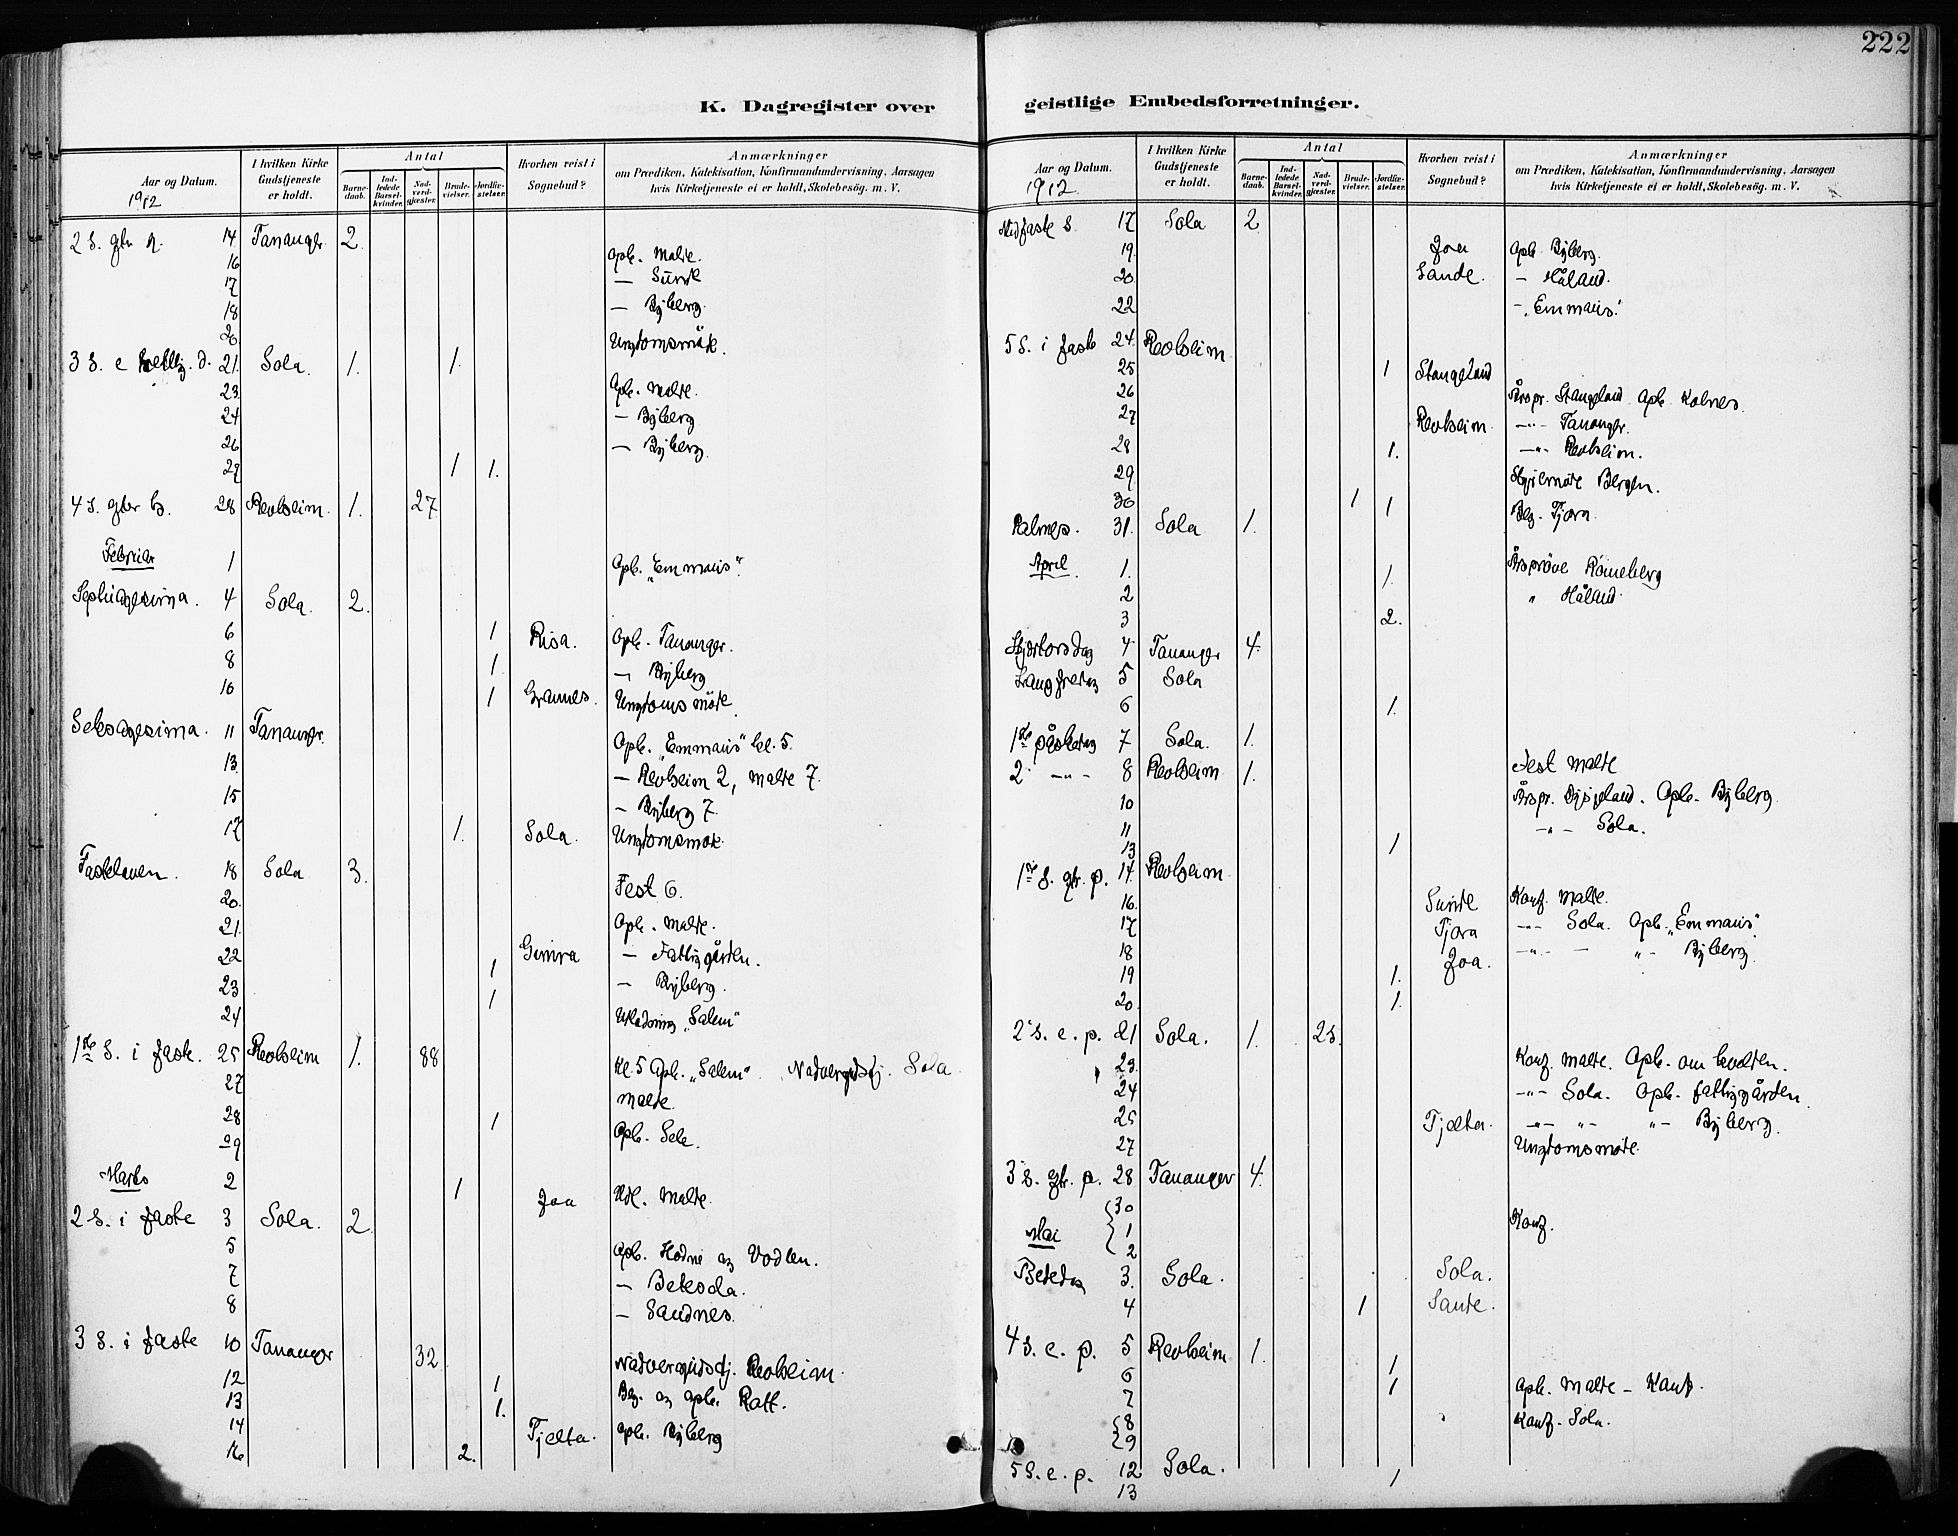 222
K. Dagregister over geistlige Embedsforretninger.
Aar og Datum. I hvilken Kirke Gudstjeneste er holdt. Antal Barnedaab. Indledede Barselkvinder. Nadverdgjæster. Brudevielser. Jordfæstelser. Hvorhen reist i Sognebud? Anmærkninger om Prædiken, Katekisation, Konfirmandundervisning, Aarsagen hvis Kirketjeneste ei er holdt, Skolebesög. m. V.
1912
14 Tananger 2
16 Opb. Malde.
17 — Sunde
18 — Byberg.
20 Ungdomsmöte.
21. Sola. 1. 1.
23. Opb. Malde.
24 — Byberg
26 — Byberg.
27 1 1.
28 Revheim. 1. 27
Februar 1 Opb. „Emmaus“.
Septuagesima. 4 Sola. 2.
6 1 Risa. Opb. Tananger.
8 1. — Byberg
10 1 Grannes. Ungdomsmöte.
Seksagesima. 11 Tananger.
Opb. „Emmaus“ kl. 5.
13. — Revheim 2, Malde 7.
15 — Byberg 7.
17 1. Sola. Ungdomsmöte.
Fastelaven. 18 Sola 3.
20. Fest 6.
21. Opb. Malde.
22 Gimra — Fattiggården.
23 1 — Byberg.
24 1 „Salem“
1ste S. i faste. 25 Revheim 1. 88
27 Kl. 5 Opb. „Salem“. Nadverdgudstj. Sola
28 Malde.
29 1 Opb. Sele.
Marts 2 1 Joa Malde.
2 S. i faste 3 Sola. 2.
5 Opb. Hodne og Vodlen.
7 — Betesda.
8 — Sandnes.
3 S. i faste 10 Tananger 32
12 1 Nadverdgudstj. Revheim.
13 1. Beg. og opb. Rott.
14 Tjelta. Opb. Byberg
16 2.
Aar og Datum. I hvilken Kirke Gudstjeneste er holdt. Antal Barnedaab. Indledede Barselkvinder. Nadverdgjæster. Brudevielser. Jordfæstelser. Hvorhen reist i Sognebud? Anmærkninger om Prædiken, Katekisation, Konfirmandundervisning, Aarsagen hvis Kirketjeneste ei er holdt, Skolebesög. m. V.
1912
Midfaste s. 17 Sola 2
19 Joa Opb. Byberg.
20 Sande. — Håland.
22 — „Emmaus“
5 S. i faste 24. Revheim
25 1 Stangeland
26 Årspr. Stangeland Opb. Kolnes.
27 Revheim —"— Tananger.
28 1. —"— Revheim.
29 Bergen.
30 1 1 Beg. Tjora
Palmes. 31. Sola 1.
April. 1. 1. Årspröve Röineberg
2 " Håland
3 2.
Skjærtorsdag 4 Tananger 4.
Langfredag 5 Sola
6 1.
1ste påskedag 7 Sola. 1.
2 —"— 8 Revheim 1. Fest Malde
10 Årspr. Dysjeland. Opb. Byberg.
11 —"— Sola.
13 1
1ste S. eftr. p. 14 Revheim
16. Sunde Konf. Malde.
17 Tjora —"— Sola. Opb. „Emmaus“.
18 Joa. —"— — "— Byberg
19 1.
20. 1.
2 S. e. p. 21 Sola. 1. 25.
23. Konf. Malde. Opb.
24 —"— Sola. Opb. fattiggården.
25 Tjelta. —"— "— "— Byberg.
27 Ungdomsmöte.
3 S. eftr. p. 28 Tananger 4.
30
Mai 1 Konf.
2
Bededag 3. Sola. Sola.
4 1 Sande.
4 S. e. p. 5 Revheim 1.
6 1
7 1 Opb. Malde — Konf.
8 Konf. Sola.
9
5 S. e. p. 12 Sola. 1
13